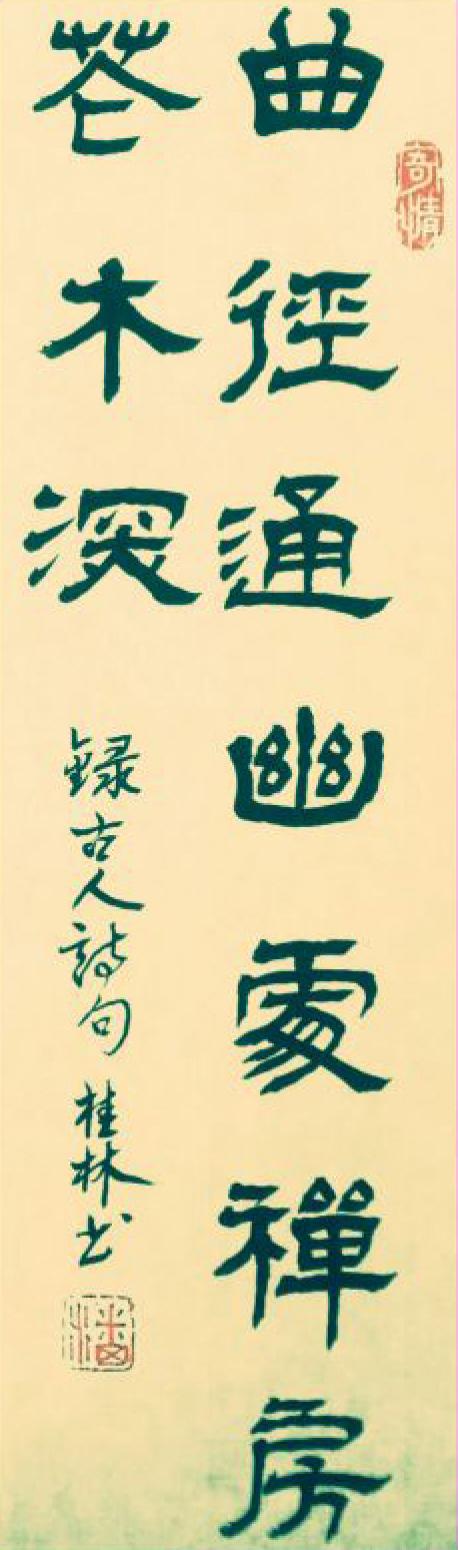 曲徑通幽處禪房
花木深
錄古人詩句 桂林书
寄情